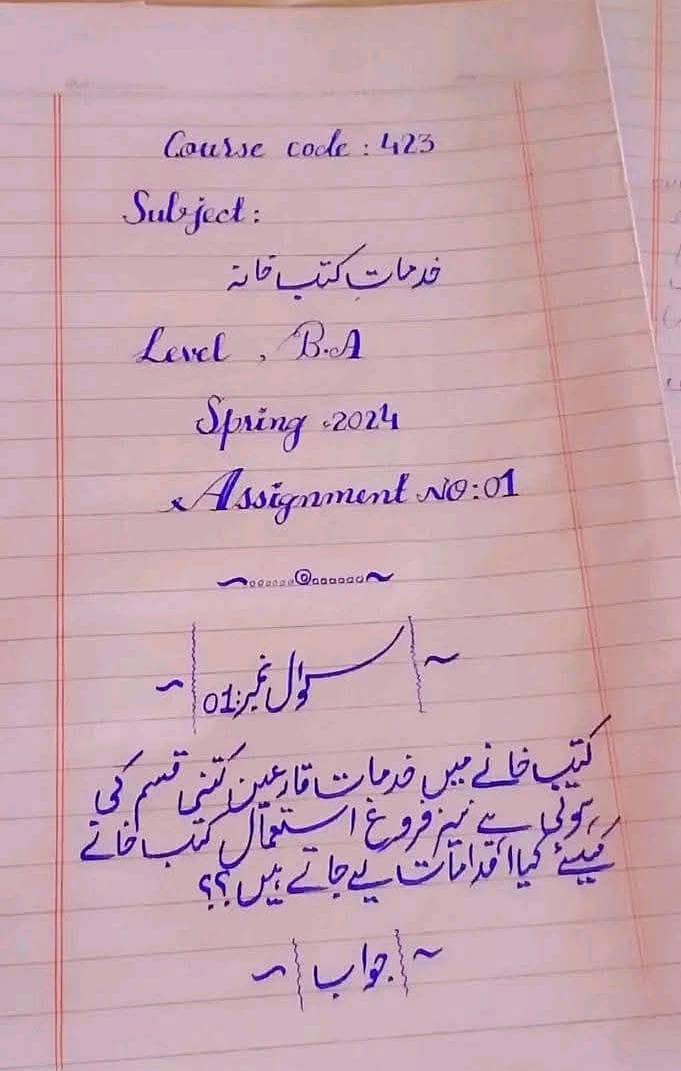 Course code : 423
Subject :
خدماتِ کتب خانہ
Level , B.A
Spring .2024
Assignment NO:01
سوال نمبر:01
کتب خانے میں خدمات قارعین کتنی قسم کی
ہوتی ہے نیز فروغ استعمال کتب خانے
کیلئے کیا اقدامات لیے جاتے ہیں؟؟
جواب